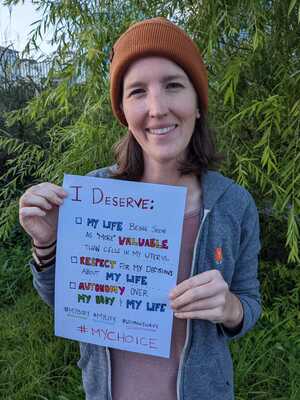 I DESERVE:
☐ MY LIFE BEING SEEN
AS "MORE" VALUABLE
THAN CELLS IN MY UTERUS.
☐ RESPECT FOR MY DECISIONS
ABOUT MY LIFE
☐ AUTONOMY OVER
MY BABY & MY LIFE
#MYBODY #MYLIFE
#MYCHOICE